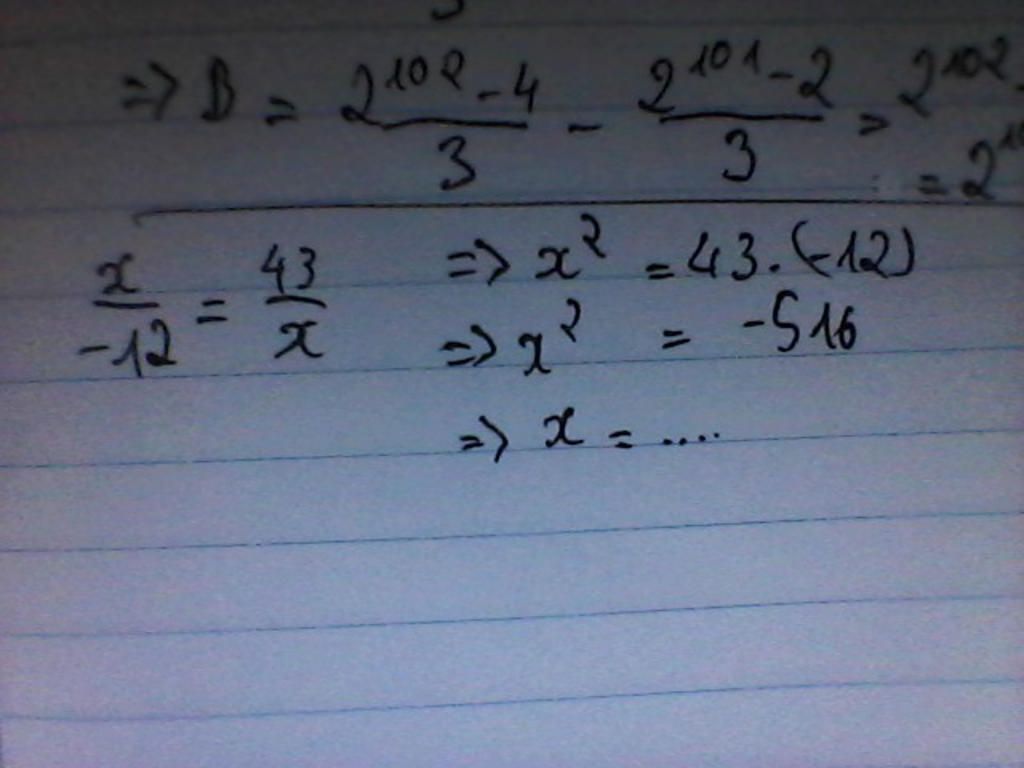 => B = (2^102 - 4)/3 - (2^101 - 2)/3 = 2^102 -
= 2^10
x/-12 = 43/x => x^2 = 43.(-12)
=> x^2 = -516
=> x = ....